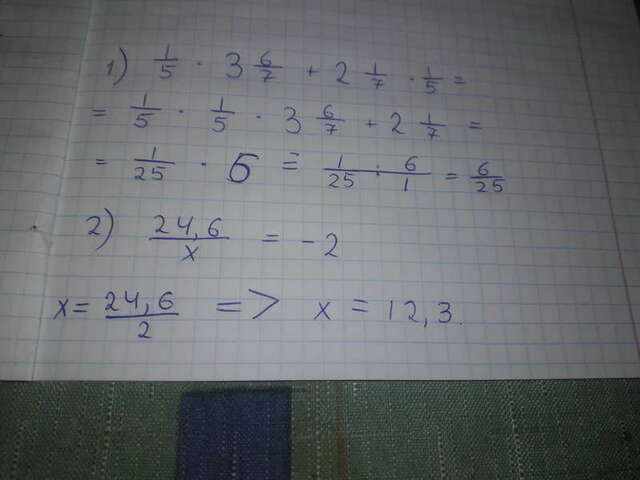 1) 1/5 · 3 6/7 + 2 1/7 · 1/5 =
= 1/5 · 1/5 · 3 6/7 + 2 1/7 =
= 1/25 · 6 = 1/25 · 6/1 = 6/25
2) 24,6/x = -2
x = 24,6/2 => x = 12,3.